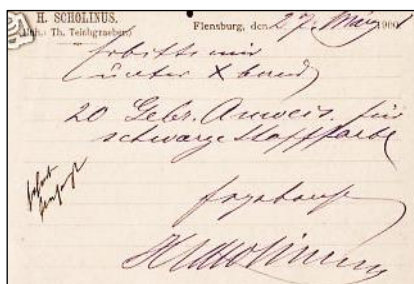 H. SCHOLINUS.
(Inh.: Th. Teichgraeber.)
Flensburg, den 27. März 190
Erbitte mir
unter Xband
20 Gebr. Anweis. für
schwarze Stofffarbe
H. Scholinus